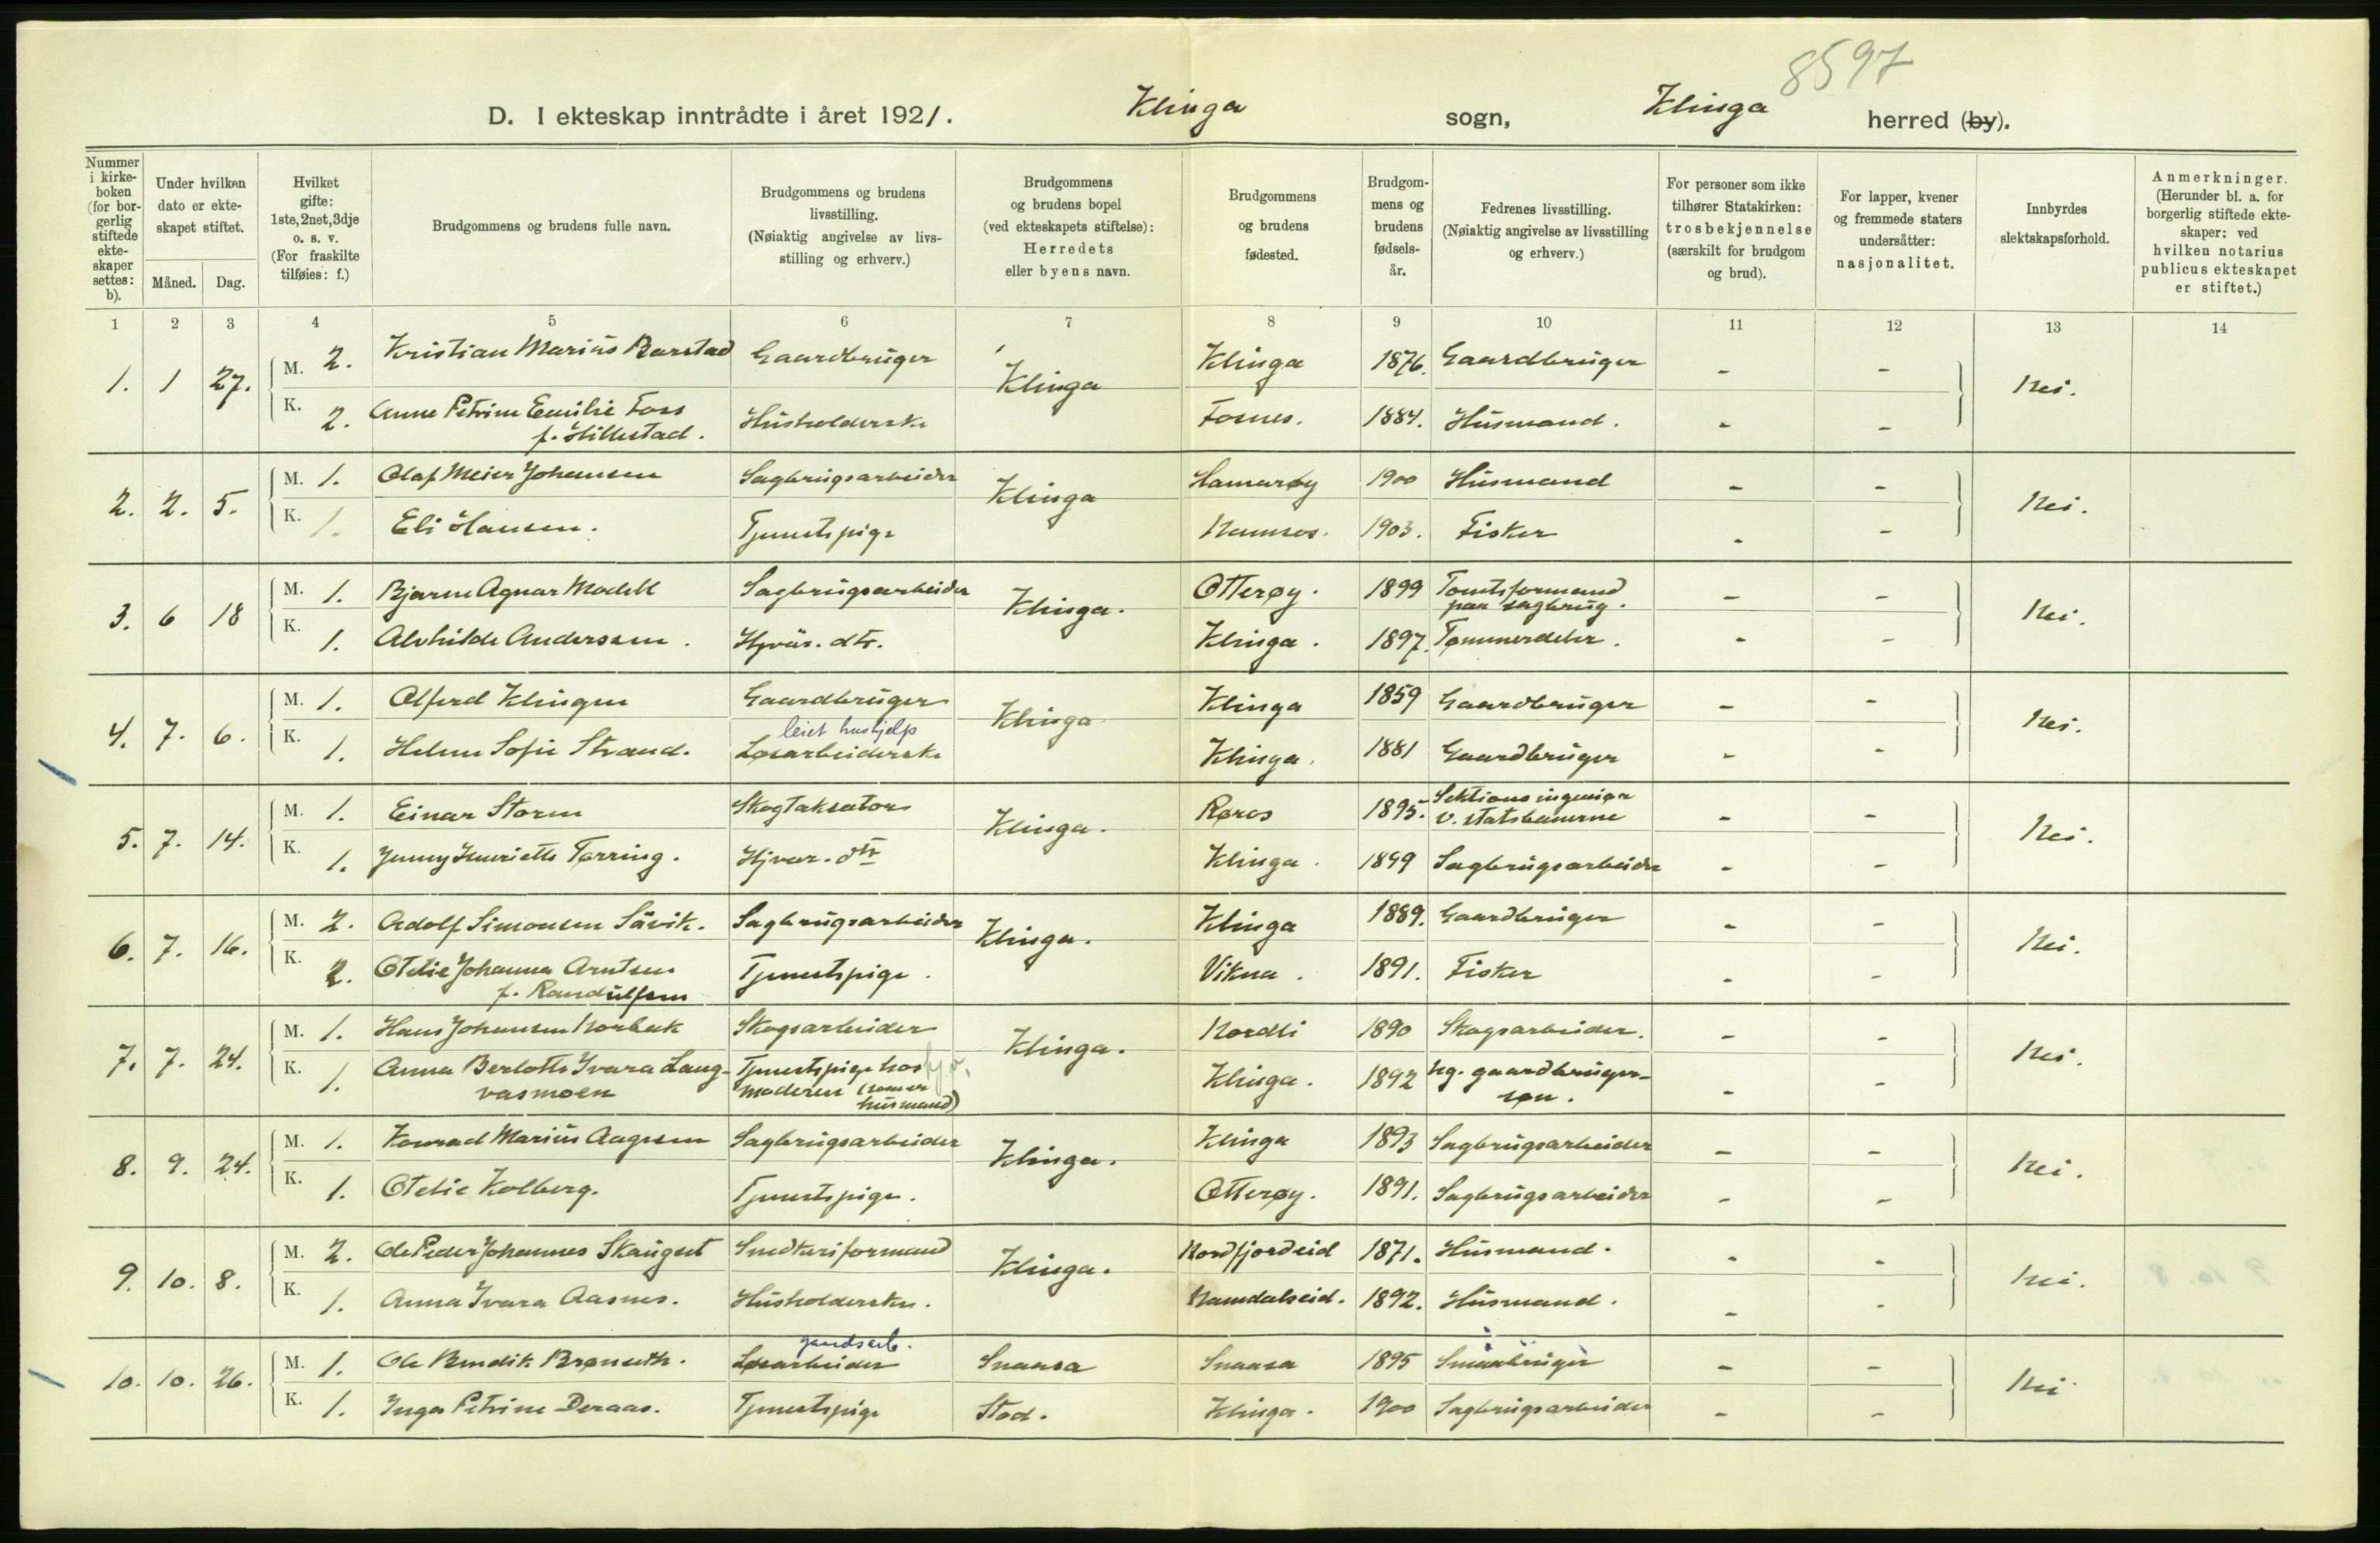 8597
D. I ekteskap inntrådte i året 1921. Klinga sogn, Klinga herred (by).
Nummer i kirke-boken (for bor-gerlig stiftede ekte-skaper settes: b).
Under hvilken dato er ekte-skapet stiftet.
Måned. Dag.
Hvilket gifte: 1ste, 2net, 3dje o. s. v. (For fraskilte tilføies: f.)
Brudgommens og brudens fulle navn.
Brudgommens og brudens livsstilling. (Nøiaktig angivelse av livs-stilling og erhverv.)
Brudgommens og brudens bopel (ved ekteskapets stiftelse): Herredets eller byens navn.
Brudgommens og brudens fødested.
Brudgom-mens og brudens fødsels-år.
Fedrenes livsstilling. (Nøiaktig angivelse av livsstilling og erhverv.)
For personer som ikke tilhører Statskirken: trosbekjennelse (særskilt for brudgom og brud).
For lapper, kvener og fremmede staters undersåtter: nasjonalitet.
Innbyrdes slektskapsforhold.
Anmerkninger. (Herunder bl. a. for borgerlig stiftede ekte-skaper: ved hvilken notarius publicus ekteskapet er stiftet.)
1 2 3 4 5 6 7 8 9 10 11 12 13 14
1. 1 27. M. 2. Kristian Marius Barstad Gaardbruger Klinga Klinga 1876. Gaardbruger - - Nei.
K. 2. Anne Petrine Emilie Foss Husholderske Fosnes. 1884. Husmand. - -
f. Hillestad.
2. 2. 5. M. 1. Olaf Meier Johansen Sagbrugsarbeider Klinga Hamarøy 1900 Husmand - - Nei.
K. 1. Eli Hansen. Tjenestpige Namsos. 1903. Fisker - -
3. 6 18 M. 1. Bjarne Agnar Modell Sagbrugsarbeider Klinga. Otterøy. 1899 Tomteformand
paa sagbrug. - - Nei.
K. 1. Alvhilde Andersen. Hjvær. dtr. Klinga. 1897. Tømmerdeler. - -
4. 7. 6. M. 1. Alferd Klingen Gaardbruger Klinga Klinga 1859 Gaardbruger - - Nei.
leiet hushjelp
K. 1. Helene Sofie Strand. Løsarbeiderske Klinga. 1881 Gaardbruger - -
5. 7. 14. M. 1. Einar Storm Skogtaksator Klinga. Røros 1895. Sektionsingeniør
v. statsbanerne - - Nei.
K. 1. Jenny Henriette Tørring. Hjvær. dtr Klinga. 1899 Sagbrugsarbeider - -
6. 7. 16. M. 2. Adolf Simonsen Sävik. Sagbrugsarbeider Klinga. Klinga 1889. Gaardbruger - - Nei.
K. 2. Otelie Johanna Arntsen Tjenestpige. Vikna. 1891. Fisker - -
f. Randulfsen
7. 7. 24. M. 1. Hans Johansen Norbak Skogsarbeider Klinga. Nordli 1890 Skogsarbeider. - - Nei.
K. 1. Anna Berlotte Ivara Lang- Tjenestpige hos Klinga. 1892 ug. gaardbruger- - -
vasmoen moderen (som er søn.
husmand)
8. 9. 24. M. 1. Konrad Marius Aagesen Sagbrugsarbeider Klinga. Klinga 1893 Sagbrugsarbeider - - Nei.
K. 1. Otelie Kolberg. Tjenestpige. Otterøy. 1891. Sagbrugsarbeider - -
9. 10. 8. M. 2. Ole Peder Johannes Skauget Snedkeriformand Klinga. Nordfjordeid 1871. Husmand. - - Nei.
K. 1. Anna Ivara Aasnes. Husholderske. Namdalseid. 1892. Husmand. - -
gaardsarb.
10. 10. 26. M. 1. Ole Bendik Brønseth. Løsarbeider Snaasa Snaasa 1895 Smaabruger - - Nei
K. 1. Inga Petrine Deraas. Tjenestpige Stod. Klinga. 1900 Sagbrugsarbeider - -